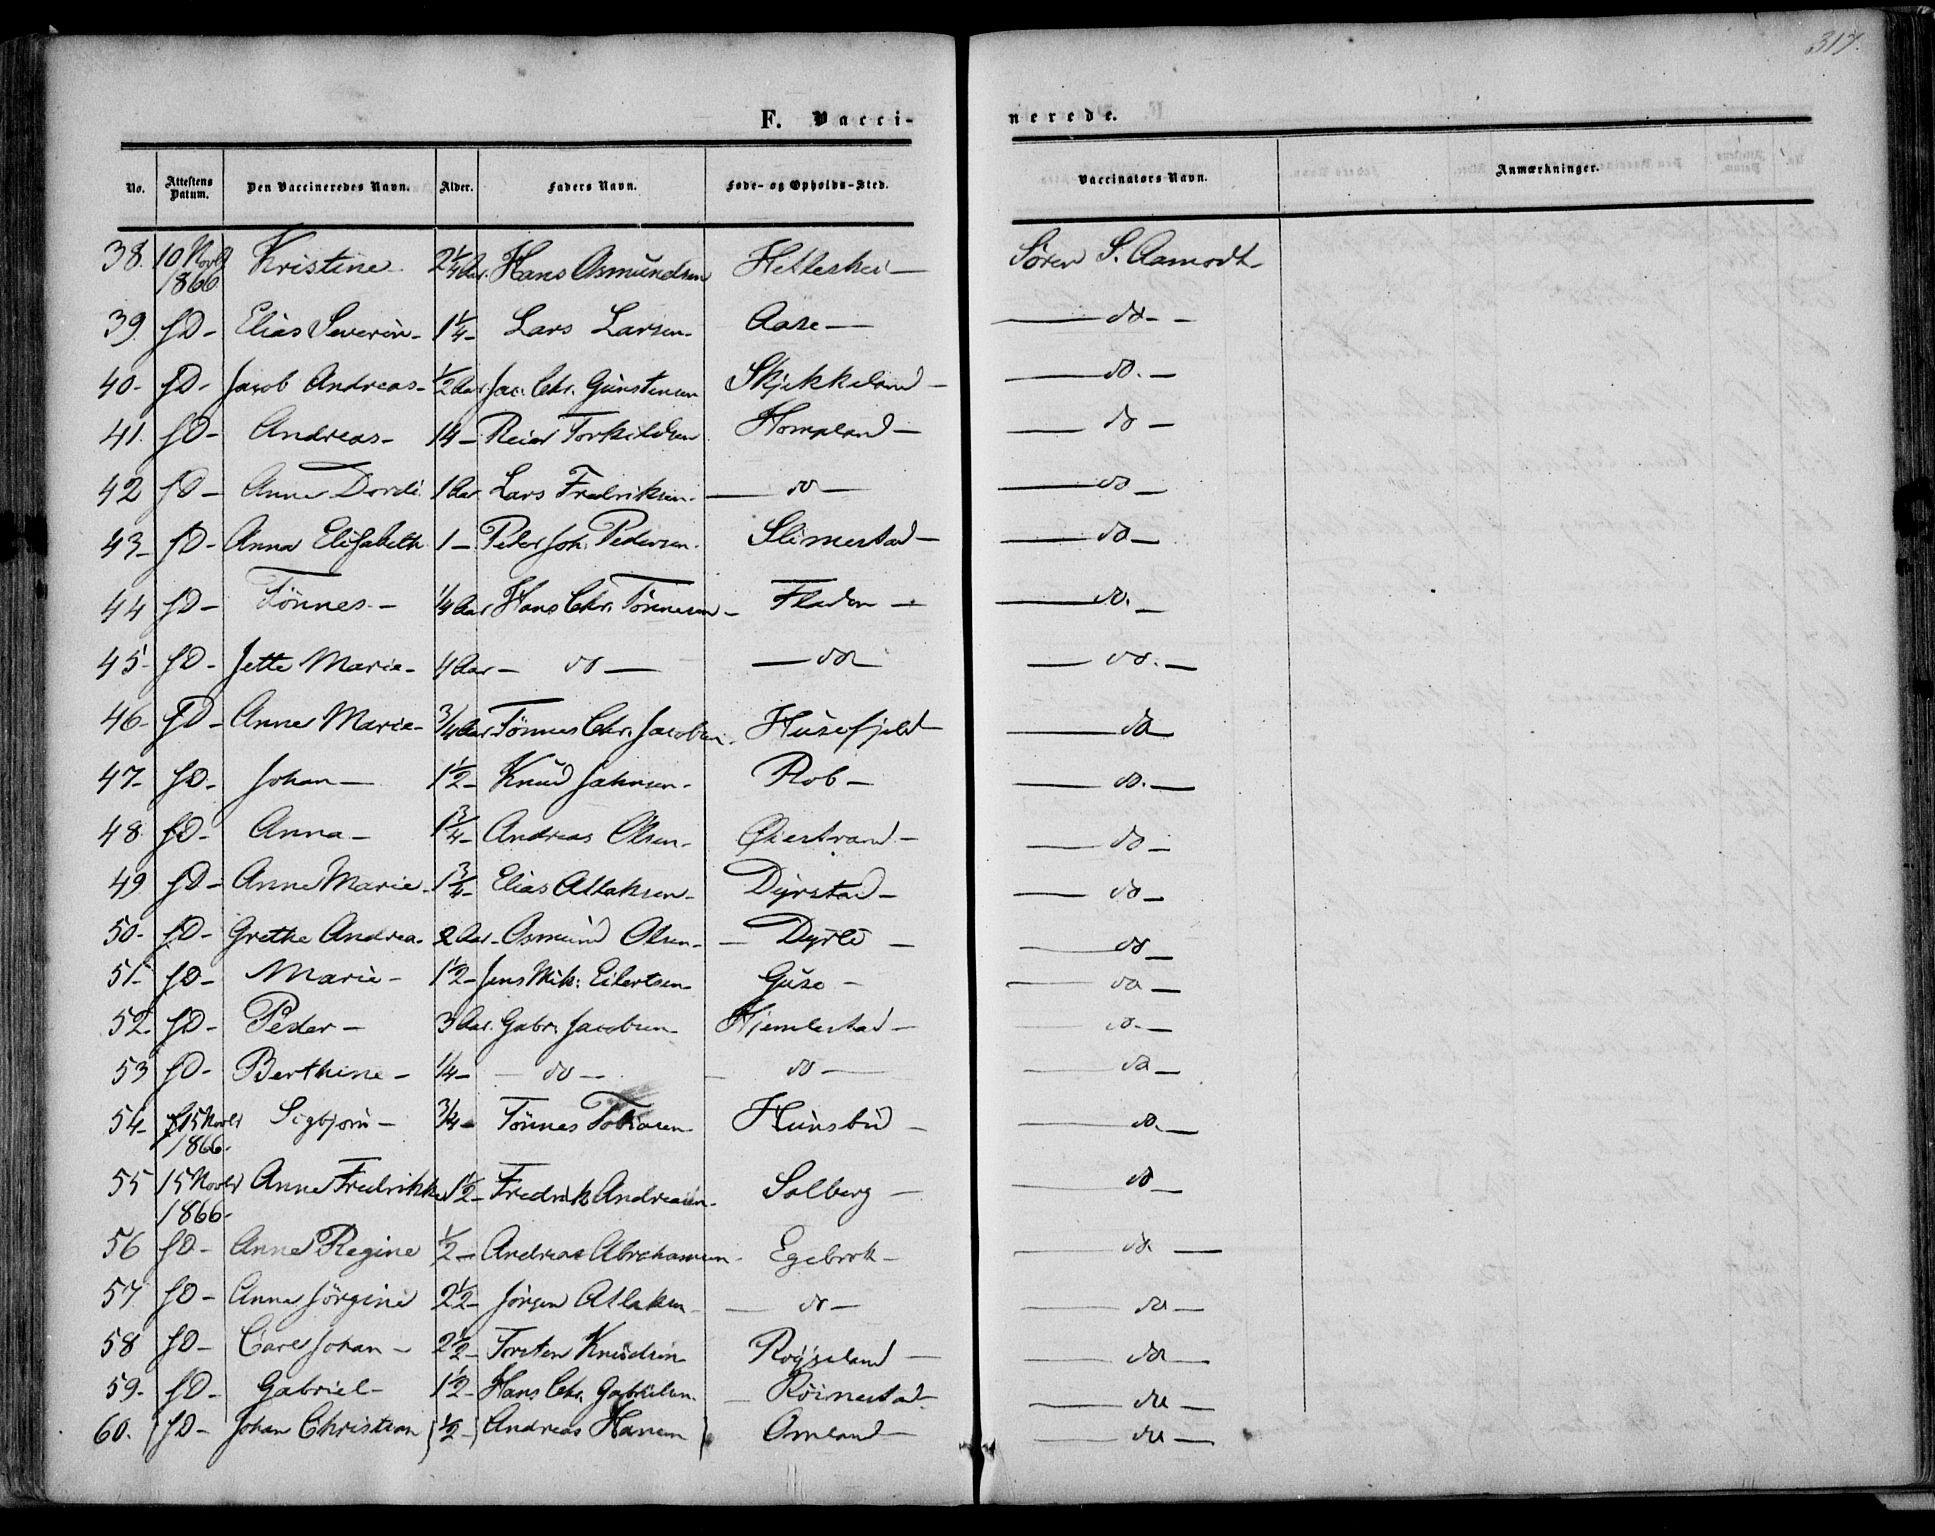 317.
F. Vaccinerede.
No. Attestens Datum. Den Vaccineredes Navn. Alder. Faders Navn. Føde- og Opholds-Sted. Vaccinators Navn. Anmærkninger.
38. 10 Novbr 1866 Kristine 2 1/4 Aar. Hans Osmundsen Helleshei — Sören S. Aamodt
39. fD — Elias Severin — 1 1/4 — Lars Larsen — Aase — do —
40 — fD — Jacob Andreas — 1/2 Aar Jac. Chr. Gunstensen Skjekkeland — do. —
41. fD — Andreas — 14 — Reier Torkildsen Hompland — do —
42 fD — Anne Dordi 1 Aar. Lars Fredriksen — do — do —
43 — fD — Anna Elisabeth 1 — Peder Joh. Pedersen. Slimestad — do —
44 fD — Tönnes — 1/4 Aar Hans Chr. Tönnesen — Fladen — do. —
45 — fD — Jette Marie — 4 Aar — do — do — do. —
46 — fD — Anne Marie — 3/4 Aar Tönnes Chr. Jacobsen. Husefjeld do
47 — fD — Johan — 1 1/2 — Knud Jahnsen — Rob — do. —
48. fD — Anna — 1 3/4 — Andreas Olsen — Øiestrand — do —
49 fD — Anne Marie — 1 3/4 — Elias Atlaksen — Dyrstad — do —
50 — fD — Grethe Andrea — 2 Aar — Osmund Olsen — Dyrli — do —
51 — fD — Marie — 1 1/2 — Jens Mik: Eilertsen — Guse — do —
52 — fD — Peder — 3 Aar. Gabr. Jacobsen — Hjemlestad — do. —
53 fD — Berthine — 1/4 — do — do — do —
54 — 15 Novbr 1866 — Sigbjørn — 3/4 — Tönnes Tobiasen — Hunsbed — do. —
55 15 Novbr 1866 — Anne Fredrikke 1 1/2 — Fredrik Andreasen — Solberg — do —
56 fD — Anne Regine 1/2 — Andreas Abrahamsen — Egebrok — do —
57 fD — Anne Jörgine 2 1/2 — Jörgen Atlaksen — do — do —
58 fD — Carl Johan — 2 1/2 — Torsten Knudsen Røyseland — do —
59 — fD — Gabriel — 1 1/2 — Hans Chr. Gabrielsen. — Röimestad. do —
60. fD — Johan Christian 1/2 — Andreas Hansen Omland — do —